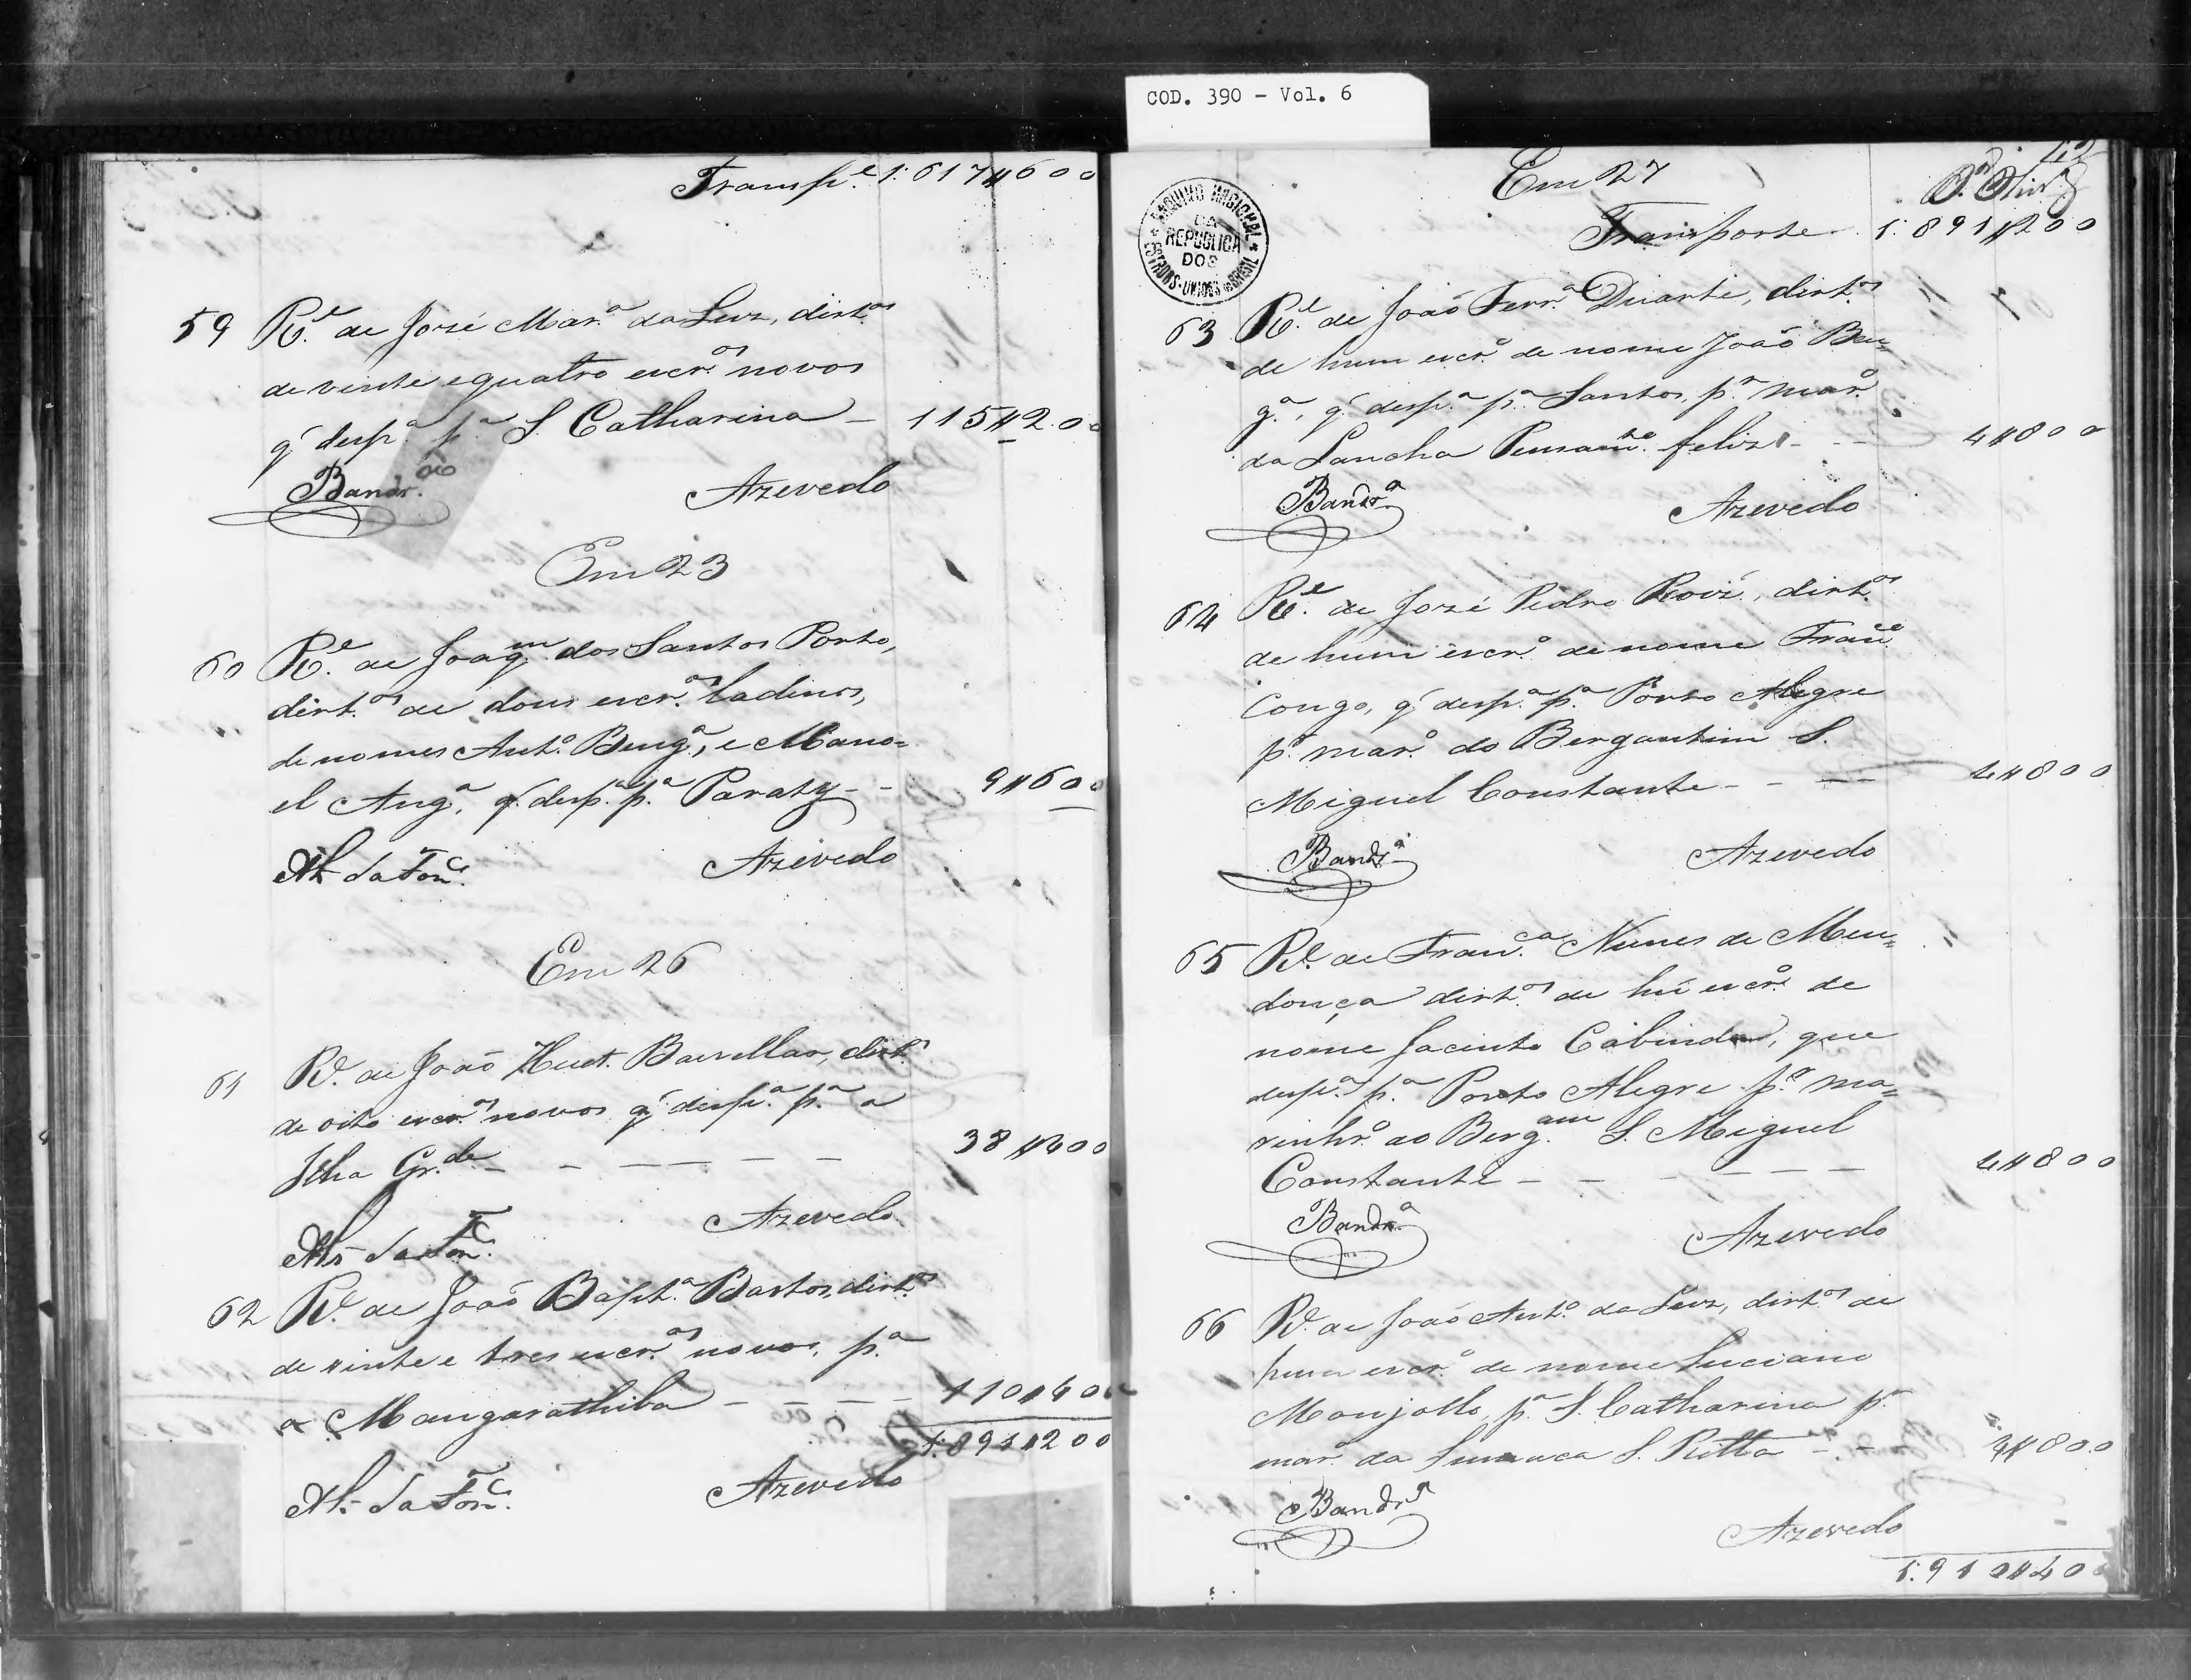 COD. 390 - Vol. 6
Transp.e 1:617$600
59 R.e de José Mar.a da Luz, dirt.os
de vinte e quatro escr.os novos
q' desp.a p.a S. Catharina - 115$200
Bandr.a Azevedo
Em 23
60 R.e de Joaq.m dos Santos Porto,
dirt.os de dous escr.os ladinos,
de nomes Ant.o Beng.a, e Mano=
el Ang.a, q' desp.a p.a Paraty - - 9$600
Azevedo
Em 26
61 R.e de João Bacellar, dirt.os
de oito escr.os novos q' desp.a p.a a
Ilha Gr.de - - - - - 38$400
Azevedo
62 R.e de João Bapt.a Bastos, dirt.os
de vinte e tres escr.os novos, p.a
a Mangarathiba - - - - 110$400
1:891$200
Azevedo
ARQUIVO NACIONAL
DA
REPUBLICA
DOS
ESTADOS-UNIDOS DO BRASIL
Em 27
Transporte 1:891$200
63 R.e de João Ferr.a Duarte, dirt.os
de hum escr.o de nome João Ben=
g.a, q' desp.a p.a Santos, p.r mar.o
da Lancha Pensam.to feliz - - - 4$800
Bandr.a Azevedo
64 R.e de José Pedro Roiz', dirt.os
de hum escr.o de nome Fran.co
Congo, q' desp.a p.a Porto Alegre
p.r mar.o do Bergantim S.
Miguel Constante - - - 4$800
Bandr.a Azevedo
65 R.e de Fran.ca Nunes de Men=
donça dirt.os de hũ escr.o de
nome Jacinto Cabinda, que
desp.a p.a Porto Alegre p.r ma=
rinhr.o do Berg.am S. Miguel
Constante - - - - - - 4$800
Bandr.a Azevedo
66 R.e de João Ant.o da Luz, dirt.os de
hum escr.o de nome Luciano
Monjollo, p.a S. Catharina p.r
mar.o da Sumaca S. Ritta - - 4$800
Bandr.a Azevedo
1:910$400